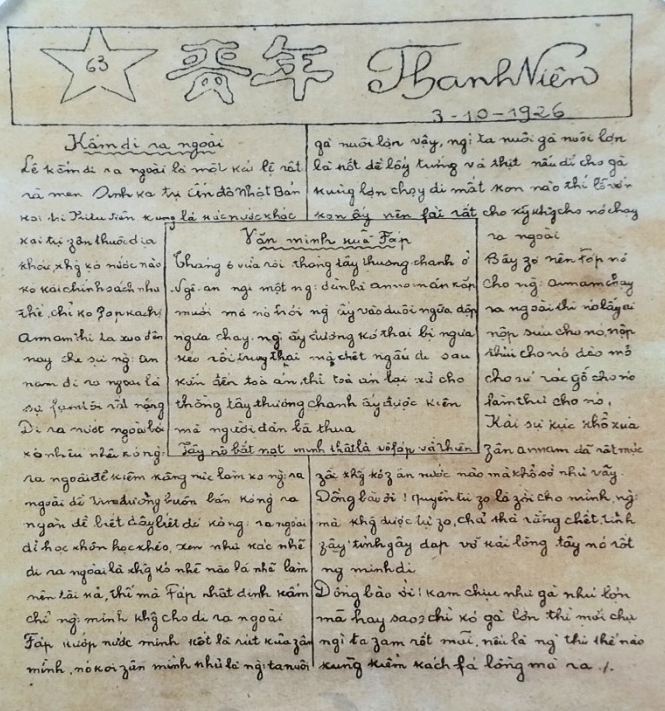 63
青年
Thanh Niên
3-10-1926
Kấm di ra ngoài
Lệ kấm di ra ngoài là một kái lệ rất
rã men
kai trị zân thuộc địa
khác, xhg kó nước nào
kó kái chính sách như
thế, chỉ kó Fáp kách
Annam thì ta xưa đến
nay che sự ng: an
nam di ra ngoài là
sự fạm tội rất nặng
Di ra nước ngoài
ra ngoài để kiếm kăng việc làm kó ng: ra
ngoài để buôn bán kó ng ra
ngắn để biết đây biết đó kó ng: ra ngoài
để học khôn học khéo, xem như kác nhẽ
di ra ngoài là xhg kó nhẽ nào là nhẽ làm
nên tội kả, thế mà Fáp nhất định kấm
chỉ ng: mình khg cho di ra ngoài
Fáp kướp nước mình kốt là rút kủa zân
mình, nó koi zân mình như là ng: ta nuôi
gà nuôi lợn vậy, ngị ta nuôi gà nuôi lợn
là kốt để lấy trứng và thịt nếu để cho gà
kung lợn chạy di mất kon nào thì lỗ vốn
kon ấy nên fải rất cho kỹ khg cho nó chạy
ra ngoài
Bây zờ nên Fáp nó
cho ng: annam chạy
ra ngoài thì nó lấy ai
nộp sưu cho nó, nộp
thuế cho nó đào mỏ
cho nó rác gỗ cho nó
làm thư cho nó,
Kái sự kực khổ kủa
zân annam đã rất mực
zồi xhg kó z ân nước nào mà khổ sở như vậy.
Đồng bào ơi! quyền tự zo là zời cho mình, ng:
mà khg được tự zo, chả thà rằng chết, tỉnh
zậy! tỉnh zậy đạp vỡ kái lồng tây nó rốt
ng mình đi
Đồng bào ơi! kam chịu như gà như lợn
mã hay sao? chỉ kó gà lợn thì mới chịu
ngị ta zam rốt mãi, nếu là ng: thì thế nào
kung kiếm kách fá lồng mà ra ./.
Văn minh kuả Fáp
Tháng 6 vừa rồi thằng tây thương chanh ở
Nghệ-an ngị một ng: đàn bà annam ăn kắp
muối mà nó trói ng: ấy vào đuôi ngựa đập
ngựa chạy. ng: ấy đương kó thai bị ngựa
kéo rồi trụy thai mà chết ngẫu di sau
kiến đến toà án, thì toà án lại xử cho
thằng tây thương chanh ấy được kiện
mà người dân bà thua
Tây nó bắt nạt mình thật là vô fáp vô thiên